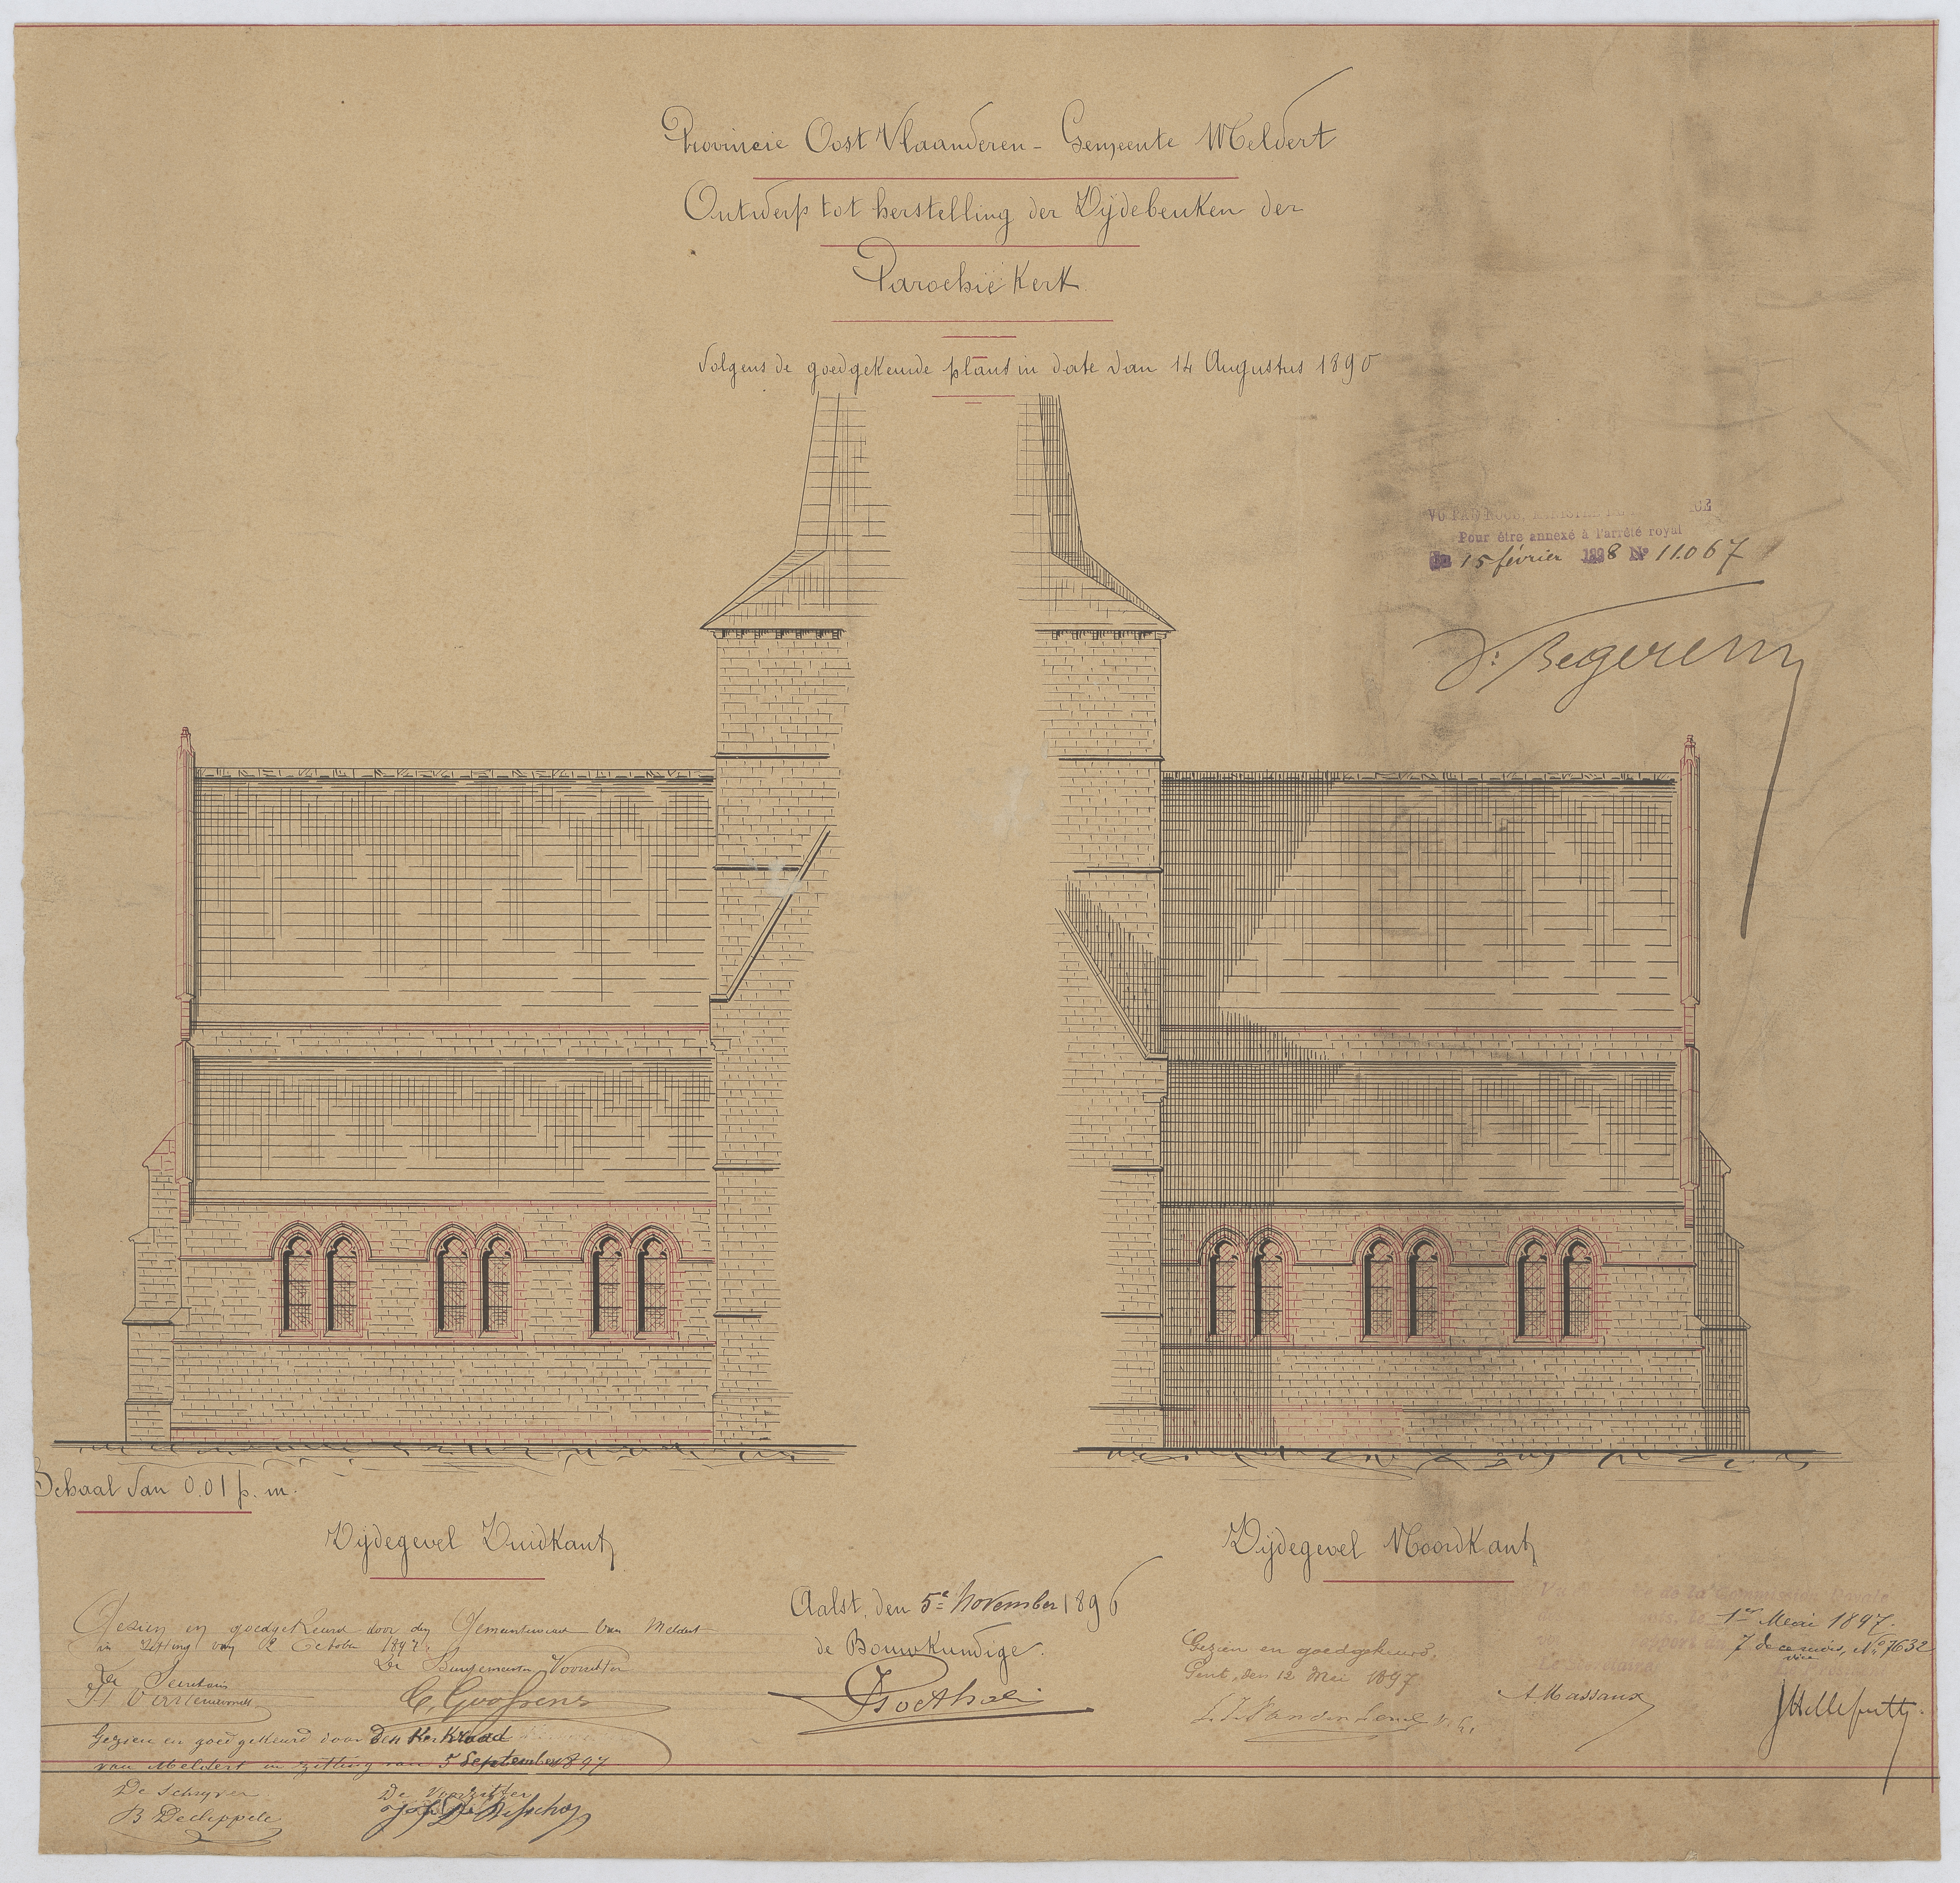 Provincie Oost Vlaanderen - Gemeente Meldert
Ontwerp tot herstelling der Zydebeuken der
Parochie Kerk
Volgens de goedgekeurde plans in date van 14 Augustus 1890
Pour être annexé à l'arrêté royal
Du 15 février 1898 Nº 11.067
Begerem
Schaal van 0.01 p. m.
Zydegevel Zuidkant
Zijdegevel Noordkant
Aalst, den 5e November 1896
de Bouwkundige.
Gezien en goedgekeurd door den Gemeenteraad van Meldert
in zitting van 2 October 1897.
De Secretaris
De Burgemeester Voorzitter
C. Goossens
Gezien en goedgekeurd door den Kerkraad
van Meldert in zitting van 5 September 1897
De Schryver
De Voorzitter
B Decleppele
Gezien en goedgekeurd,
Gent, den 12 Mei 1897
1er Mai 1897.
7 Nº 7632
Le Secrétaire
A. Massaux
JHelleputte